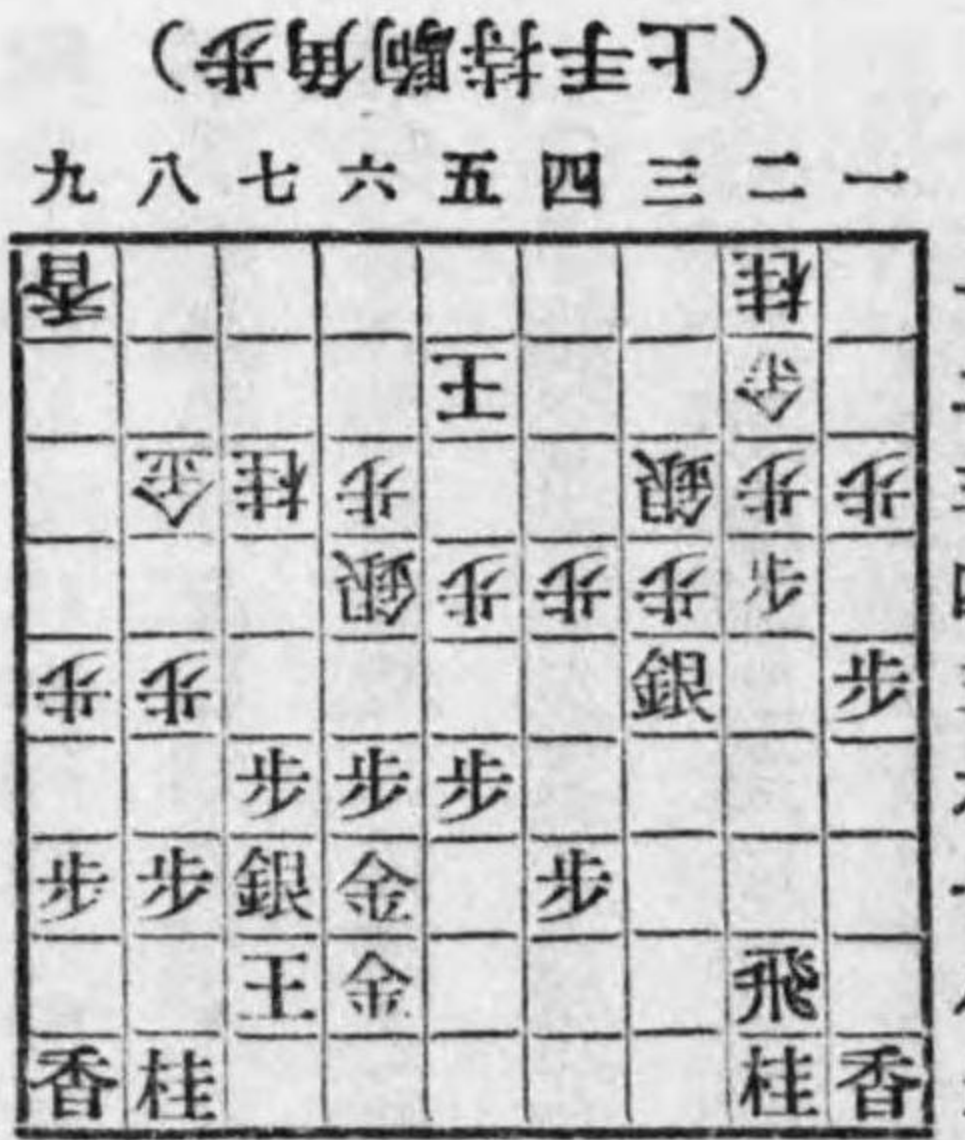 （上手持駒角歩）
九 八 七 六 五 四 三 二 一
香 桂
王 金
金 桂 歩 銀 歩 歩
銀 歩 歩 歩
歩 歩 銀 歩
歩 歩 歩
歩 歩 銀 金 歩
王 金 飛
香 桂 桂 香